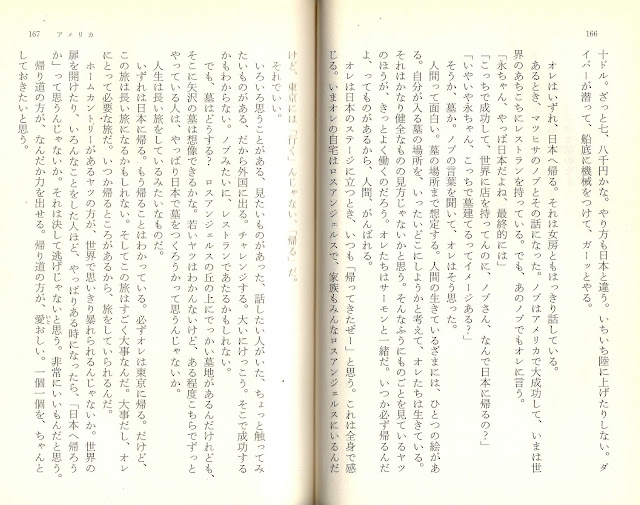 166
十ドル。ざっと七、八千円かな。やり方も日本と違う。いちいち陸に上げたりしない。ダ
イバーが潜って、船底に機械をつけて、ガーッとやる。
オレはいずれ、日本へ帰る。それは女房ともはっきり話している。
あるとき、マツヒサのノブとその話になった。ノブはアメリカで大成功して、いまは世
界のあちこちにレストランを持っている。でも、あのノブでもオレに言う。
「永ちゃん、やっぱ日本だよね、最終的には」
「こっちで成功して、世界に店を持ってんのに、ノブさん、なんで日本に帰るの？」
「いやいや永ちゃん、こっちで墓建てるってイメージある？」
そうか、墓か。ノブの言葉を聞いて、オレはそう思った。
人間って面白い。墓の場所まで想定する。人間の生きているざまには、ひとつの絵があ
る。自分が入る墓の場所を、いったいどこにしようかと考えて、オレたちは生きている。
それはかなり健全なものの見方じゃないかと思う。そんなふうにものごとを見ているヤツ
のほうが、きっとよく働くのだろう。オレたちはサーモンと一緒だ。いつか必ず帰るんだ
よ、ってものがあるから、人間、がんばれる。
オレは日本のステージに立つとき、いつも「帰ってきたぜー」と思う。これは全身で感
じる。いまオレの自宅はロスアンジェルスで、家族もみんなロスアンジェルスにいるんだ
167 アメリカ
けど、東京には「行く」んじゃない、「帰る」だ。
それでいい。
いろいろ思うことがある、見たいものがあった、話したい人がいた、ちょっと触ってみ
たいものがある、だから外国に出る。チャレンジする。大いにけっこう。そこで成功する
かもわからない。ノブみたいに、レストランであたるかもしれない。
でも、墓はどうする？ ロスアンジェルスの丘の上にでっかい墓地があるんだけれども、
そこに矢沢の墓は想像できるかな。若いヤツはわかんないけど、ある程度こちらでずっと
やっている人は、やっぱり日本で墓をつくろうかって思うんじゃないか。
人生は長い旅をしているみたいなものだ。
いずれは日本に帰る。もう帰ることはわかっている。必ずオレは東京に帰る。だけど、
この旅は長い旅になるかもしれない。そしてこの旅はすごく大事なんだ。大事だし、オレ
にとって必要な旅だ。いつか帰るところがあるから、旅をしていられるんだ。
ホームカントリーがあるヤツの方が、世界で思いきり暴れられるんじゃないか。世界の
扉を開けたり、いろんなことをした人ほど、やっぱりある時になったら、「日本へ帰ろう
か」って思うんじゃないか。それは決して逃げじゃないと思う。非常にいいもんだと思う。
帰り道の方が、なんだか力を出せる。帰り道の方が、愛おしい。一個一個を、ちゃんと
しておきたいと思う。